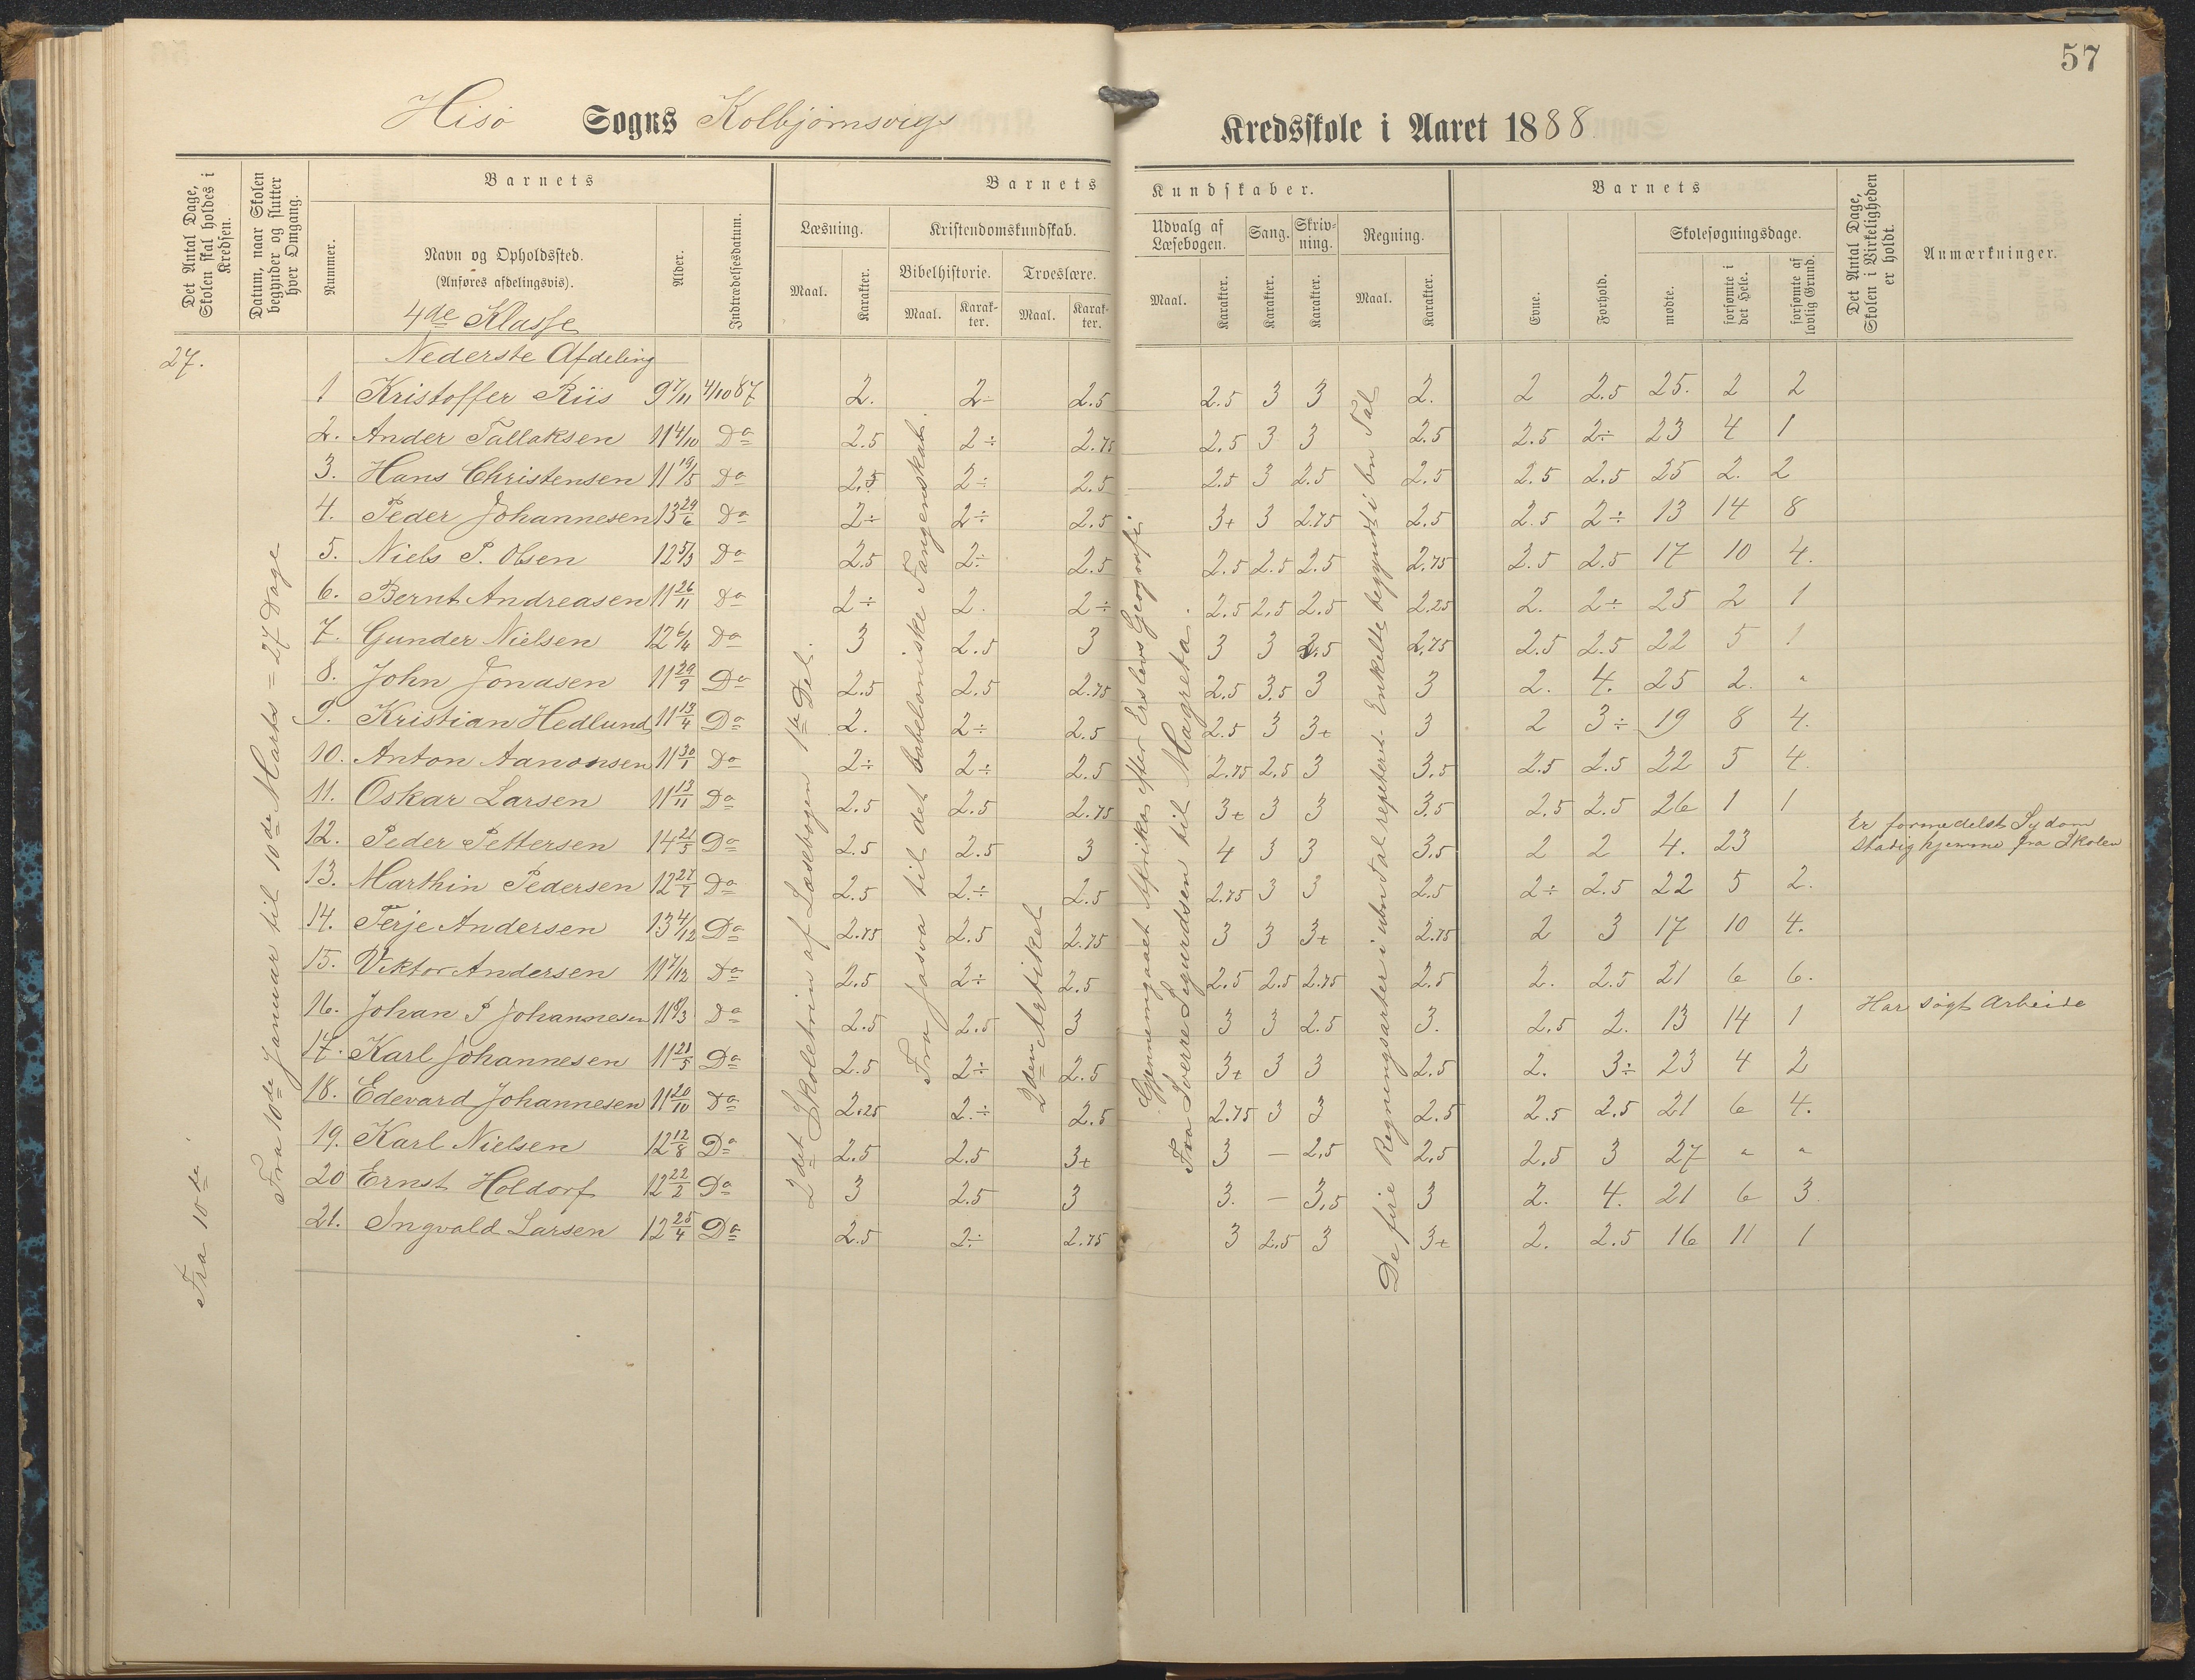 57
Hisö Sogns Kolbjørnsvigs Kredsskole i Aaret 1888
Det Antal Dage, Skolen skal holdes i Kredsen.
Datum, naar Skolen begynder og slutter hver Omgang.
Barnets
Nummer.
Navn og Opholdssted.
(Anføres afdelingsvis).
4de Klasse
Alder.
Indtrædelsesdatum.
Barnets Kundskaber.
Læsning.
Maal.
Karakter.
Kristendomskundskab.
Bibelhistorie.
Maal.
Karakter.
Troeslære.
Maal.
Karakter.
Udvalg af Læsebogen.
Maal.
Karakter.
Sang.
Karakter.
Skrivning.
Karakter.
Regning.
Maal.
Karakter.
Barnets
Evne.
Forhold.
Skolesøgningsdage.
mødte.
forsømte i det Hele.
forsømte af lovlig Grund.
Det Antal Dage, Skolen i Virkeligheden er holdt.
Anmærkninger.
27.
Nederste Afdeling
1 Kristoffer Riis 9 7/11 4/10 87 2. 2÷ 2.5 2.5 3 3 2. 2 2.5 25. 2 2
2. Ander Tallaksen 11 4/10 Do 2.5 2÷ 2.75 2.5 3 3 2.5 2.5 2÷ 23 4 1
3. Hans Christensen 11 19/5 Do 2.5 2÷ 2.5 2+ 3 2.5 2.5 2.5 2.5 25 2. 2
4. Peder Johannesen 13 29/6 Do 2÷ 2÷ 2.5 3+ 3 2.75 2.5 2.5 2÷ 13 14 8
5. Niels P. Olsen 12 5/3 Do 2.5 2÷ 2.5 2.5 2.5 2.5 2.75 2.5 2.5 17 10 4.
6. Bernt Andreasen 11 26/11 Do 2÷ 2. 2÷ 2.5 2.5 2.5 2.25 2. 2÷ 25 2 1
7. Gunder Nielsen 12 6/4 Do 3 2.5 3 3 3 2.5 2.75 2.5 2.5 22 5 1
8. John Jonasen 11 29/9 Do 2.5 2.5 2.75 2.5 3.5 3 3 2. 4. 25 2. "
9. Kristian Hedlund 11 13/4 Do 2. 2÷ 2.5 2.5 3 3+ 3 2 3÷ 19 8 4.
10. Anton Aanonsen 11 30/1 Do 2÷ 2÷ 2.5 2.75 2.5 3 3.5 2.5 2.5 22 5 4
11. Oskar Larsen 11 13/11 Do 2.5 2.5 2.75 3+ 3 3 3.5 2.5 2.5 26 1 1
12. Peder Pettersen 14 21/5 Do 2.5 2.5 3 4 3 3 3.5 2 2 4. 23 Er formedelst Sydom stadig hjemme fra Skolen
13. Marthin Pedersen 12 27/7 Do 2.5 2÷ 2.5 2.75 3 3 2.5 2÷ 2.5 22 5 2.
14. Terje Andersen 13 4/12 Do 2.75 2.5 2.75 3 3 3+ 2.75 2 3 17 10 4.
15. Viktor Andersen 11 7/12 Do 2.5 2÷ 2.5 2.5 2.5 2.75 2.5 2. 2.5 21 6 6.
16. Johan P Johannesen 11 8/3 Do 2.5 2.5 3 3 3 2.5 3. 2.5 2. 13 14 1 Har søgt Arbeide
17. Karl Johannesen 11 21/5 Do 2.5 2÷ 2.5 3+ 3 3 2.5 2. 3÷ 23 4 2
18. Edevard Johannesen 11 20/10 Do 2.25 2.÷ 2.5 2.75 3 3 2.5 2.5 2.5 21 6 4.
19. Karl Nielsen 12 12/8 Do 2.5 2.5 3+ 3 — 2.5 2.5 2.5 3 27 " "
20 Ernst Holdorf 12 22/2 Do 3 2.5 3 3. — 3.5 3 2. 4. 21 6 3
21. Ingvald Larsen 12 25/4 Do 2.5 2÷ 2.75 3 2.5 3 3+ 2. 2.5 16 11 1
Fra 10de
Fra 10de Januar til 10de Marts = 27 Dage
2det Skoletrin af Læsebogen 1ste Del.
Fra Josva til det babeloniske Fangenskab.
2den Artikel
Gjennemgaaet Afrika efter Erslevs Geografi.
Fra Sverre Sigurdsen til Magreta.
De fire Regningsarter i ubn Tal repeteret. Enkelte begyndt i bn Tal